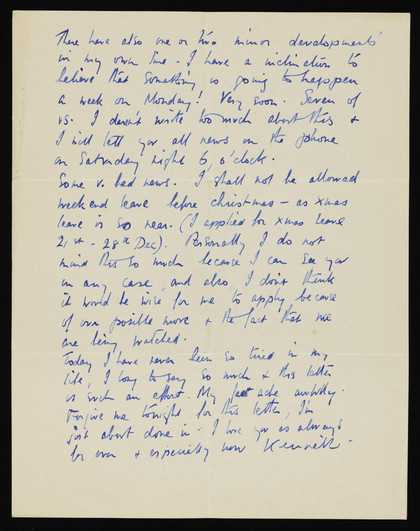 There have also one or two minor developments
in my own line - I have a inclination to
believe that something is going to happen
a week on Monday! Very soon. Seven of
us. I daren't write too much about this &
I will tell you all news on the phone
on Saturday night 6, o'clock.
Some v. bad news. I shall not be allowed
weekend leave before christmas - as xmas
leave is so near. (I applied for xmas leave
21st - 28th Dec). Personally I do not
mind this so much because I can see you
in any case, and also I don't think
it would be wise for me to apply because
of our possible move & the fact that we
are being watched.
Today I have never been so tired in my
life, I long to say so much & this letter
is such an effort. My feet ache awfully.
Forgive me tonight for this letter, I'm
just about done in - I love you as always
for ever & especially now Kenneth.